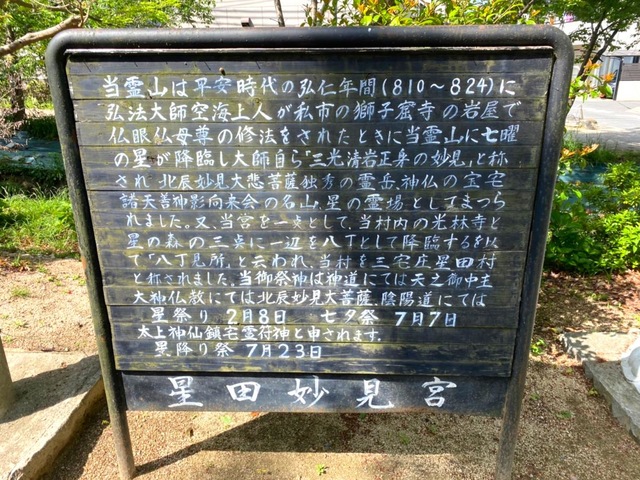 当霊山は平安時代の弘仁年間(810～824)に
弘法大師空海上人が私市の獅子窟寺の岩屋で
仏眼仏母尊の修法をされたときに当霊山に七曜
の星が降臨し大師自ら「三光清岩正身の妙見」と称
され北辰妙見大悲菩薩独秀の霊岳、神仏の宝宅
諸天善神影向来会の名山、星の霊場としてまつら
れました。又、当宮を一点として、当村内の光林寺と
星の森の三点に一辺を八丁として降臨するを以
て「八丁見所」と云われ、当村を三宅庄星田村
と称されました。当御祭神は神道にては天之御中主
大神仏教にては北辰妙見大菩薩、陰陽道にては
星祭り 2月8日 七夕祭 7月7日
太上神仙鎮宅霊符神と申されます。
星降り祭 7月23日
星田妙見宮